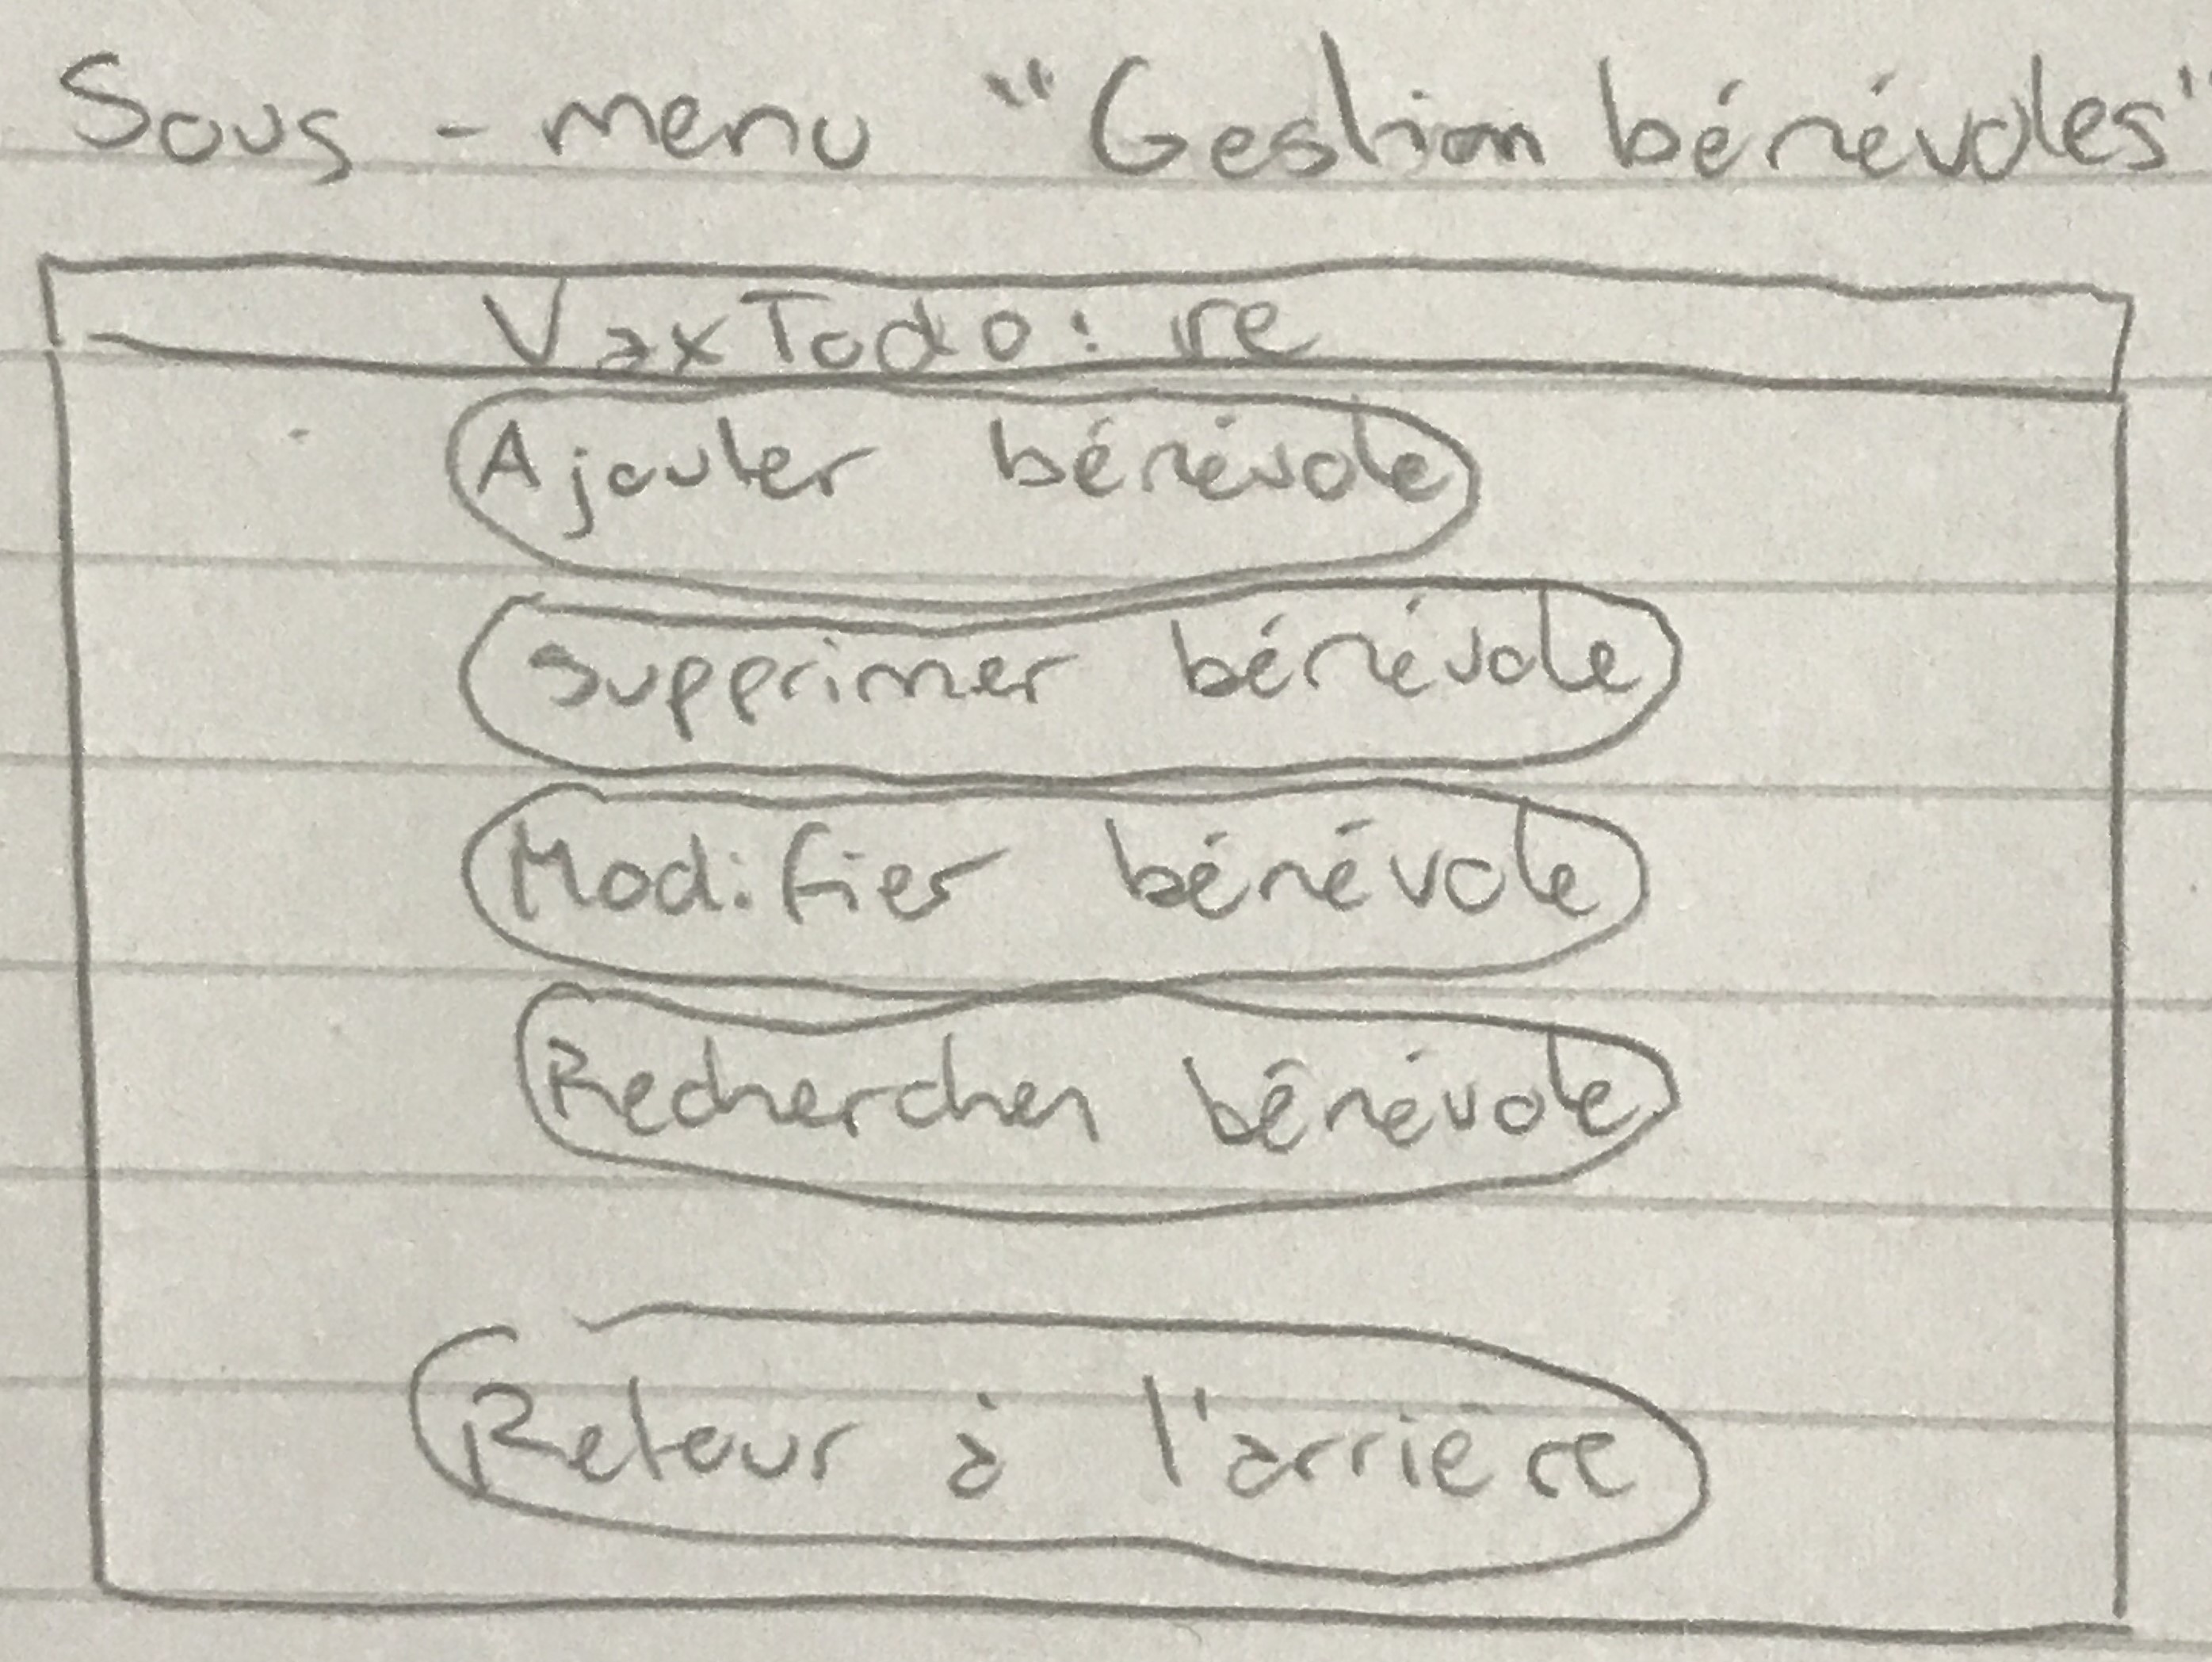 Sous - menu "Gestion bénévoles"
VaxTodo: re
Ajouter bénévole
Supprimer bénévole
Modifier bénévole
Rechercher bénévole
Retour à l'arrière